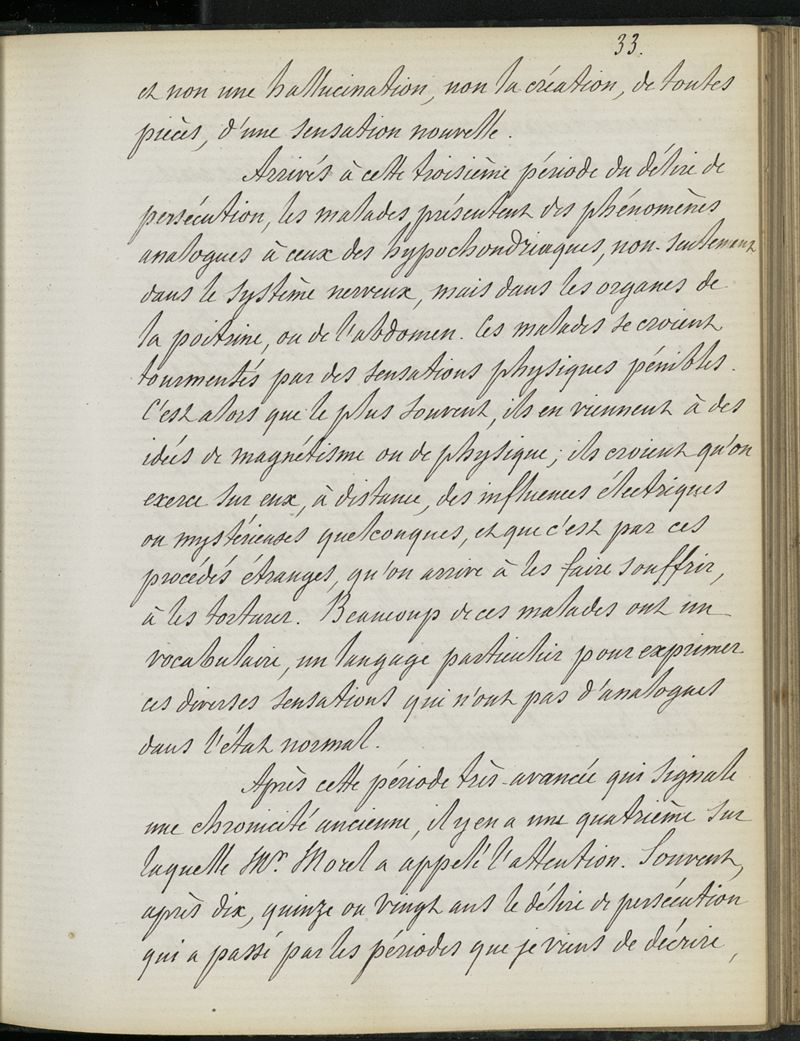 33.
et non une hallucination, non la création, de toutes
pièces, d'une sensation nouvelle.
Arrivés à cette troisième période du délire de
persécution, les malades présentent des phénomènes
analogues à ceux des hypochondriaques, non-seulement
dans le système nerveux, mais dans les organes de
la poitrine, ou de l'abdomen. Ces malades se croient
tourmentés par des sensations physiques pénibles.
C'est alors que le plus souvent, ils en viennent à des
idées de magnétisme ou de physique; ils croient qu'on
exerce sur eux, à distance, des influences électriques
ou mystérieuses quelconques, et que c'est par ces
procédés étranges, qu'on arrive à les faire souffrir,
à les torturer. Beaucoup de ces malades ont un
vocabulaire, un langage particulier pour exprimer
ces diverses sensations qui n'ont pas d'analogues
dans l'état normal.
Après cette période très-avancée qui signale
une chronicité ancienne, il y en a une quatrième sur
laquelle Mr. Morel a appelé l'attention. Souvent,
après dix, quinze ou vingt ans le délire de persécution
qui a passé par les périodes que je viens de décrire,